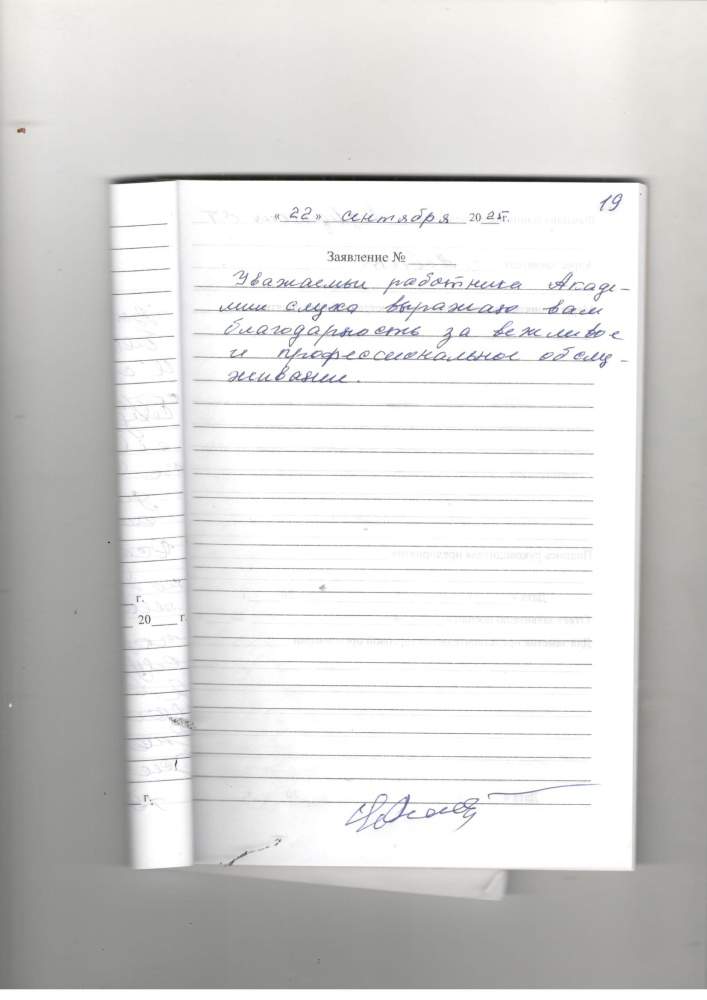 19
« 22 » сентября 20 25 г.
Заявление №
Уважаемы работника Акаде-
мии слуха выражаю вам
благодарность за вежливое
и профессиональное обслу-
живании.
г.
20 г.
г.